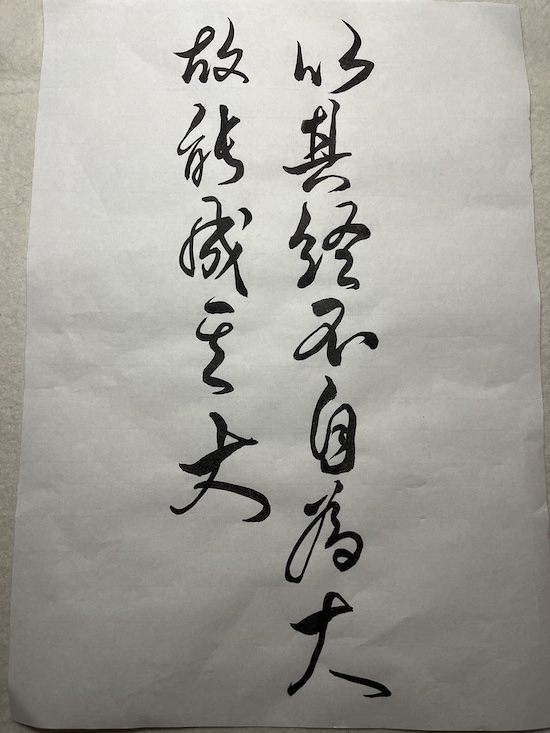 以其终不自为大
故能成其大